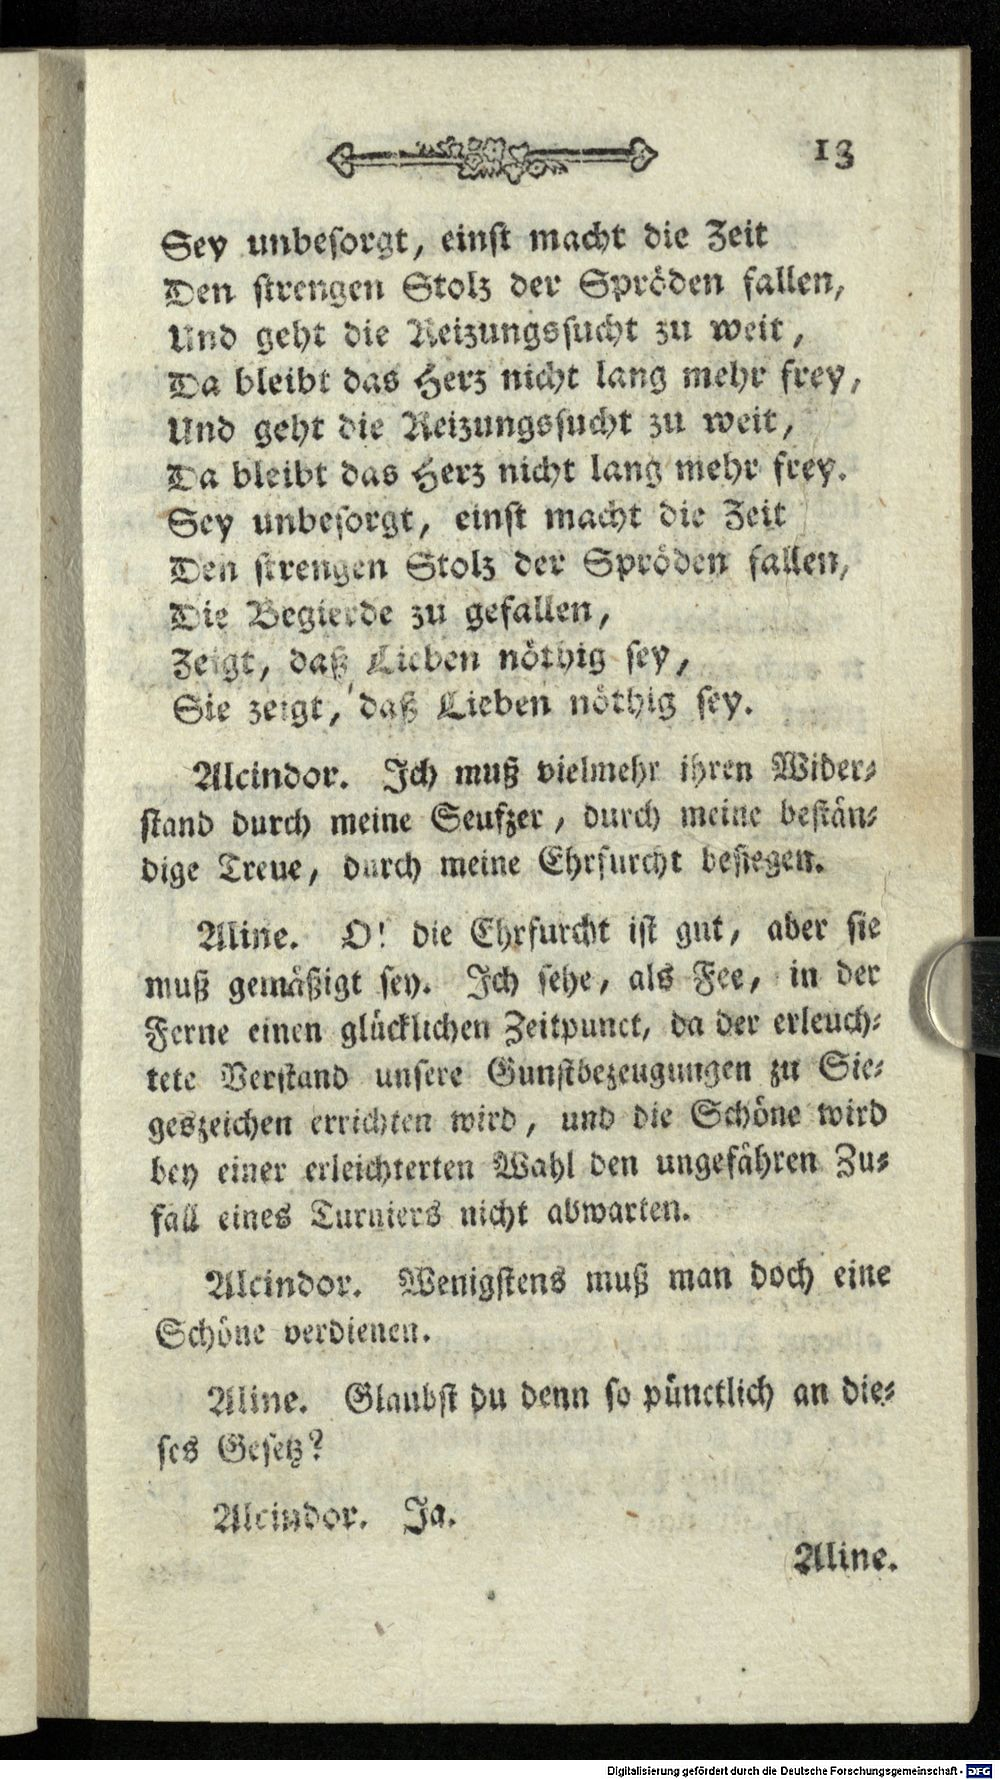 13
Sey unbesorgt, einst macht die Zeit
Den strengen Stolz der Spröden fallen,
Und geht die Reizungssucht zu weit,
Da bleibt das Herz nicht lang mehr frey,
Und geht die Reizungssucht zu weit,
Da bleibt das Herz nicht lang mehr frey.
Sey unbesorgt, einst macht die Zeit
Den strengen Stolz der Spröden fallen,
Die Begierde zu gefallen,
Zeigt, daß Lieben nöthig sey,
Sie zeigt, daß Lieben nöthig sey.
Alcindor. Ich muß vielmehr ihren Wider-
stand durch meine Seufzer, durch meine bestän-
dige Treue, durch meine Ehrfurcht besiegen.
Aline. O! die Ehrfurcht ist gut, aber sie
muß gemäßigt sey. Ich sehe, als Fee, in der
Ferne einen glücklichen Zeitpunct, da der erleuch-
tete Verstand unsere Gunstbezeugungen zu Sie-
geszeichen errichten wird, und die Schöne wird
bey einer erleichterten Wahl den ungefähren Zu-
fall eines Turniers nicht abwarten.
Alcindor. Wenigstens muß man doch eine
Schöne verdienen.
Aline. Glaubst du denn so pünctlich an die-
ses Gesetz?
Alcindor. Ja.
Aline.
Digitalisierung gefördert durch die Deutsche Forschungsgemeinschaft - DFG